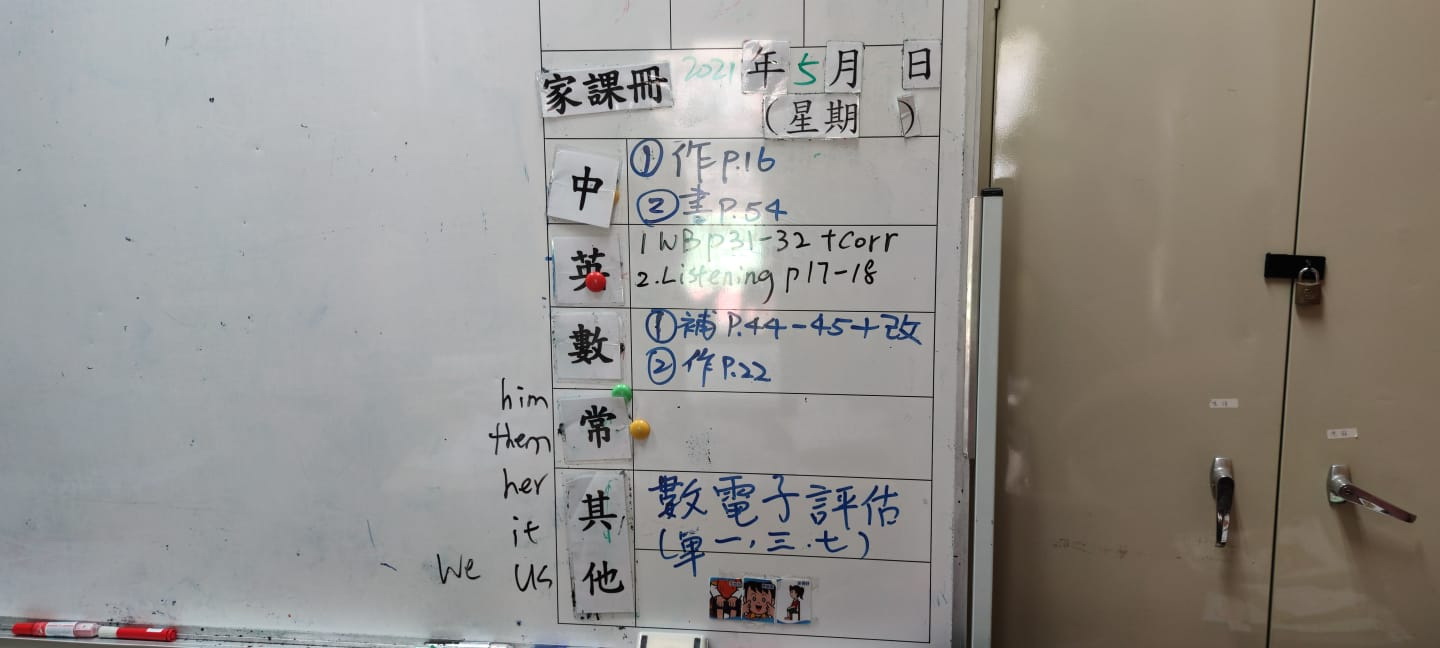 家課冊 2021年5月 日
(星期 )
中
①作P.16
②書P.54
英
1 WB p31-32 +Corr
2.Listening p17-18
數
①補P.44-45+改
②作P.22
常
其他
數電子評估
(單一,三.七)
him
them
her
it
We us